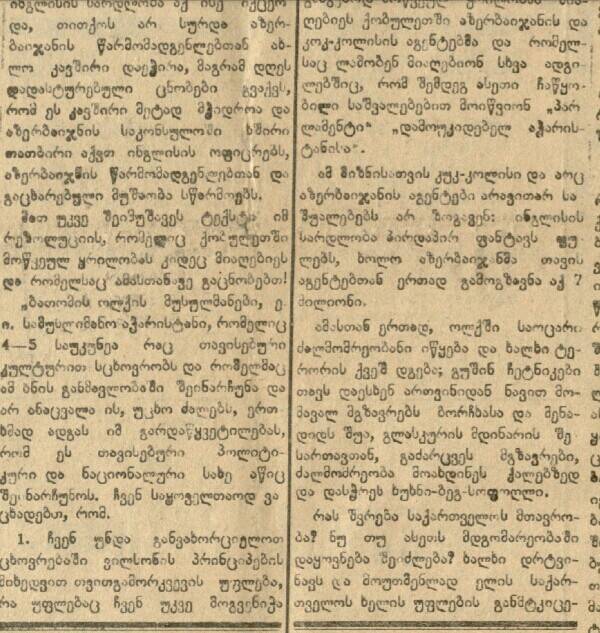 ინგლისის სარდლობა აქ ისე იქცეო
და, თითქოს არ სურდა აზერ-
ბაიჯანის წარმომადგენლებთან ახ-
ლო კავშირი დაეჭირა, მაგრამ დღეს
დადასტურებული ცნობები გვაქვს,
რომ ეს კავშირი მეტად მჭიდროა და
აზერბაიჯნის საკონსულოში ხშირი
თათბირი აქვთ ინგლისის ოფიცრებს,
აზერბაიჯნის წარმომადგენლებთან და
გაცხარებული მუშაობა სწარმოებს.
მათ უკვე შეიმუშავეს ტექსტი იმ
რეზოლუციის, რომელიც ქობულეთში
მოწვეულ ყრილობას კიდეც მიაღებიეს
და რომელსაც ამასთანავე გაცნობებთ!
„ბათომის ოლქის მუსულმანები, ე.
ი. სამუსლიმანო აჭარისტანი, რომელიც
4—5 საუკუნეა რაც თავისებური
კულტურით სცხოვრობს და რომელმაც
ამ ხნის განმავლობაში შეინარჩუნა და
არ ანაცვალა ის, უცხო ძალებს, ერთ-
ხმად ადგას იმ გარდაწყვეტილებას,
რომ ეს თავისებური პოლიტი-
კური და ნაციონალური სახე აწიც
შეინარჩუნოს. ჩვენ საყოველთაოდ ვა
ცხადებთ, რომ.
1. ჩვენ უნდა განვახორციელოთ
ცხოვრებაში ვილსონის პრინციპების
მიხედვით თვითგამორკვევის უფლება,
რა უფლებაც ჩვენ უკვე მოგვენიჭა
ღებიეს ქობულეთში აზერბაიჯანის და
კოკ-კოლისის აგენტებმა და რომელ-
საც ლამობენ მიაღებიონ სხვა ადგი
ლებშიც, რომ შემდეგ ასეთი ჩაწყო-
ბილი საშვალებებით მოიწვიონ „პარ
ლამენტი“ „დამოუკიდებელ აჭარის-
ტანისა“.
ამ მიზნისათვის კუკ-კოლისი და არც
აზერბაიჯანის აგენტები არავითარ სა
შუალებებს არ ზოგავენ: ინგლისის
სარდლობა პირდაპირ ფანტავს ფუ-
ლებს, ხოლო აზერბაიჯანმა თავის
აგენტებთან ერთად გამოგზავნა აქ 7
მილიონი.
ამასთან ერთად, ოლქში საოცარი
ძალმომრეობანი იწყება და ხალხი ტე-
რორის ქვეშ დგება; გუშინ ჩეტნიკები
თავს დაესხენ ართვინიდან ნავით მო-
მავალ მგზავრებს ბორჩხასა და მენა-
დიდს შუა, გლასკურის მდინარის შე-
სართავთან, გაძარცვეს მგზავრები,
ძალმომრეობა მოახდინეს ქალებზედ
და დასჭრეს ხუსნი-ბეგ-სოფოღლი.
რას შვრება საქართველოს მთავრო-
ბა? ნუ თუ ასეთს მდგომარეობაში
დაყოვნება შეიძლება? ხალხი დრტვი-
ნავს და მოუთმენლად ელის საქარ-
თველოს ხელის უფლების განმტკიცე-